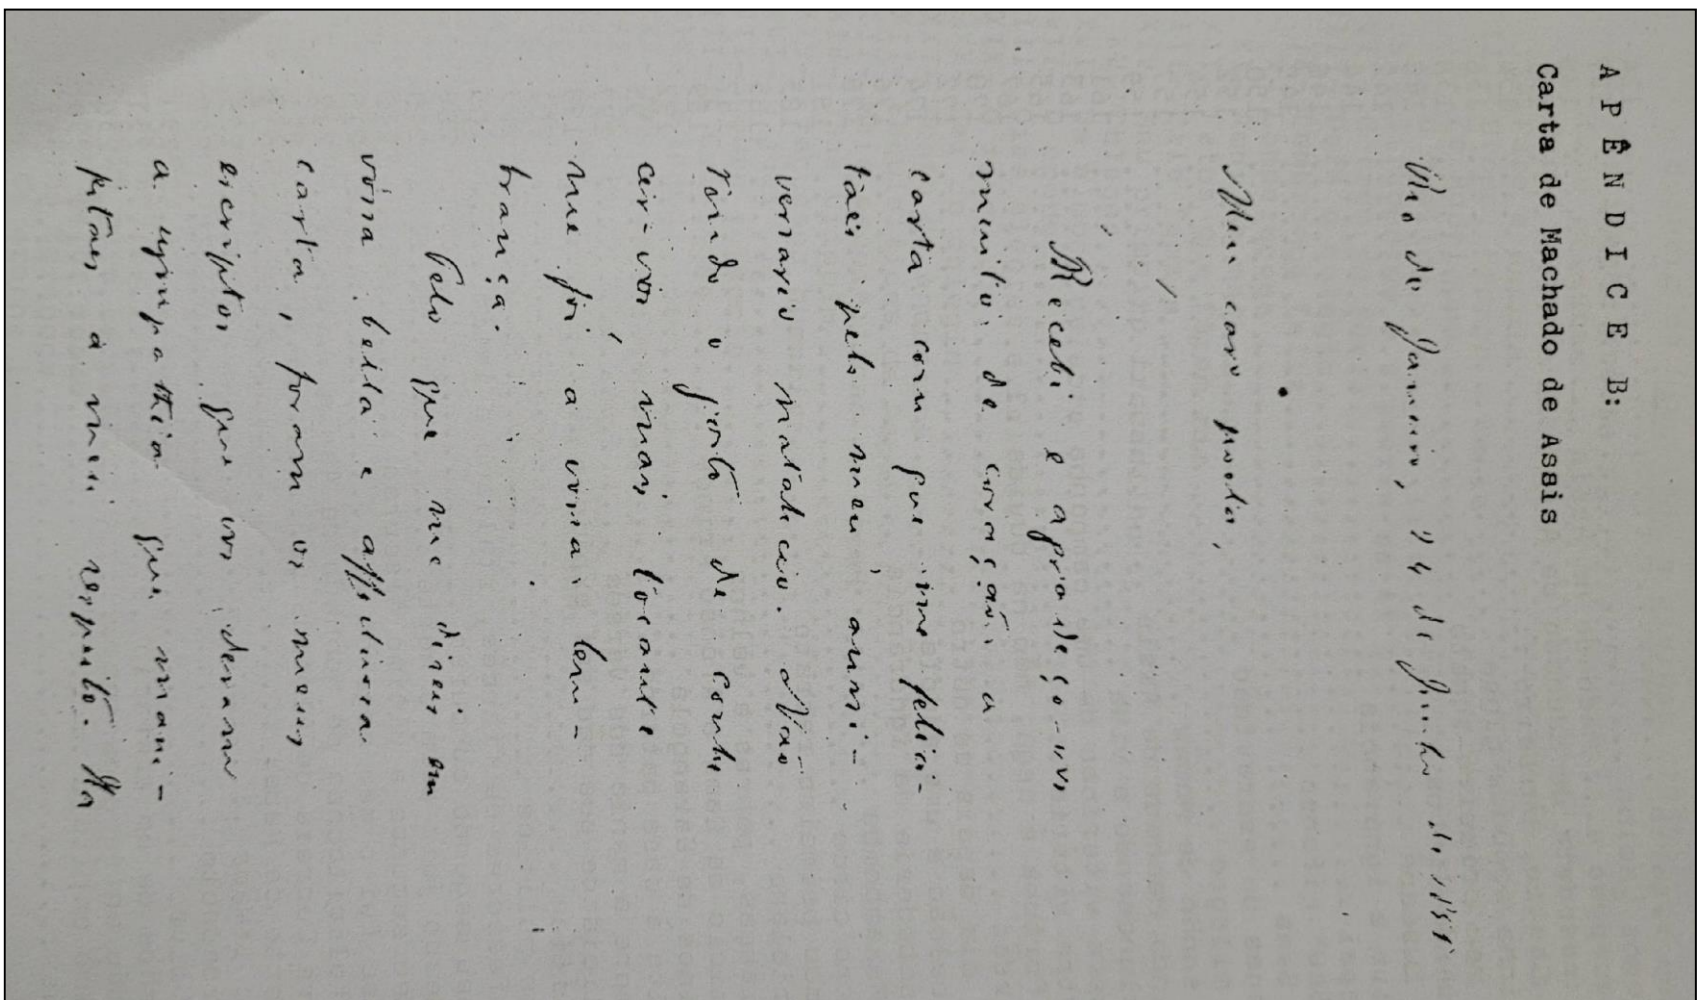 A P Ê N D I C E B:
Carta de Machado de Assis
Rio de Janeiro, 24 de Junho de
Meu caro poeta,
Recebi e agradeço-vos
muito de coração a
carta com que me felici-
taes pelo meu anni-
versario natalicio. Não
tendo o gosto de conhe
cer-vos, mais tocante
me foi a vossa lem-
brança.
Pelo que me dizeis em
vossa bella e affectuosa
carta, foram os meus
escriptos que vos deram
a sympathia que mani-
festaes a meu respeito. Ha